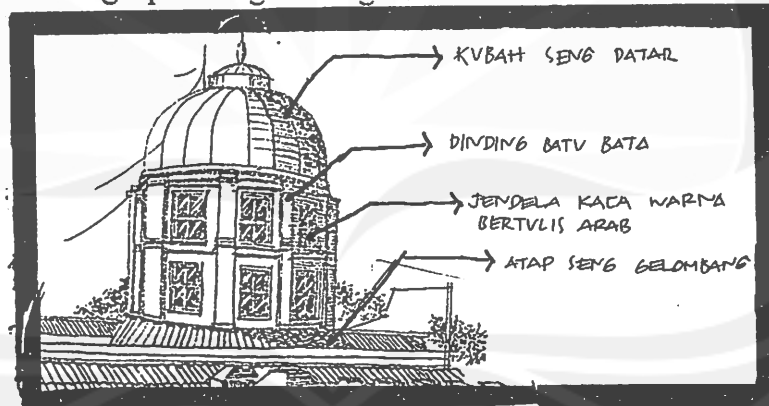 KUBAH SENG DATAR
DINDING BATU BATA
JENDELA KACA WARNA
BERTULIS ARAB
ATAP SENG GELOMBANG